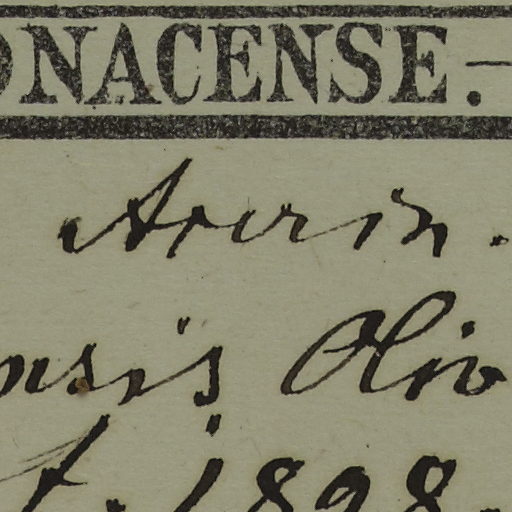 ONACENSE.—
Averin.
ensis Oliv
t. 1898.